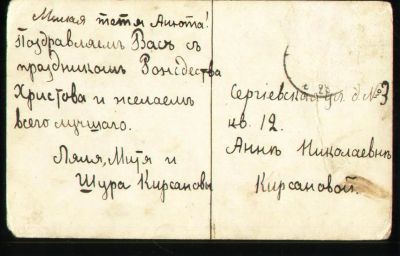 Милая тетя Анюта!
Поздравляемъ Васъ съ
праздникомъ Рождества
Христова и желаемъ
всего лучшаго.
Ляля, Митя и
Шура Кирсановы
Сергіевская ул. д. № 3
кв. 12.
Аннѣ Николаевнѣ
Кирсановой.